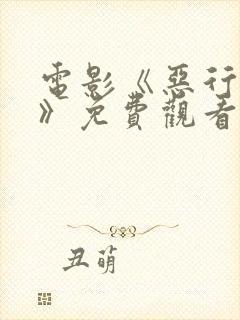 電影《惡行
》免費觀看
丑萌